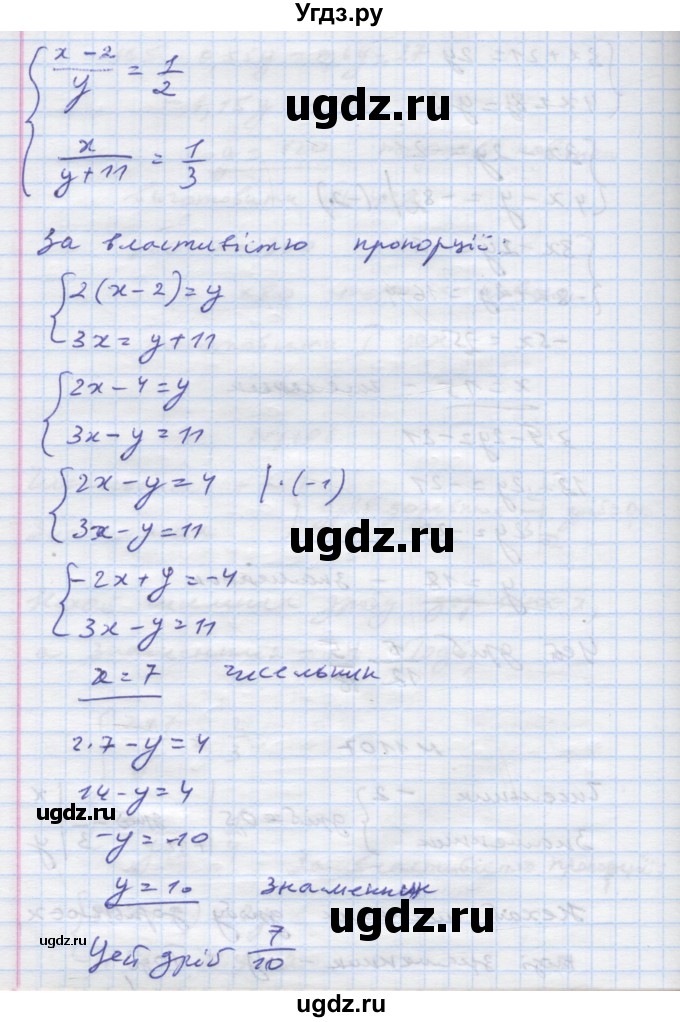 Угдз.ру
{ (x − 2)/y = 1/2
ugdz.ru
x/(y+11) = 1/3
За властивістю пропорції:
{ 2(x−2)=y
3x = y+11
ugdz.ru
{ 2x−4=y
3x−y=11
{ 2x−y=4 |·(−1)
3x−y=11
ugdz.ru
{ −2x+y=−4
3x−y=11
x=7 чисельник
2·7−y=4
14−y=4
ugdz.ru
−y=−10
y=10 знаменник
ugdz.ru
ugdz.ru
Цей дріб 7/10
ugdz.ru